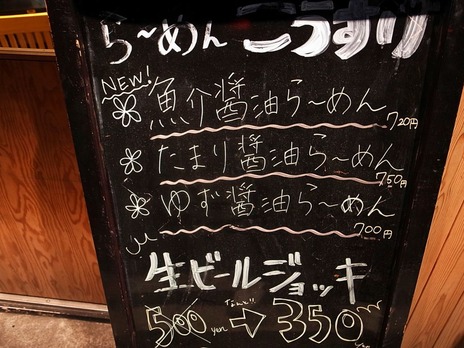 ら〜めん こうすけ
NEW!
魚介醤油ら〜めん
720円
たまり醤油ら〜めん
750円
ゆず醤油ら〜めん
700円
生ビールジョッキ
500 yen → 350
yen